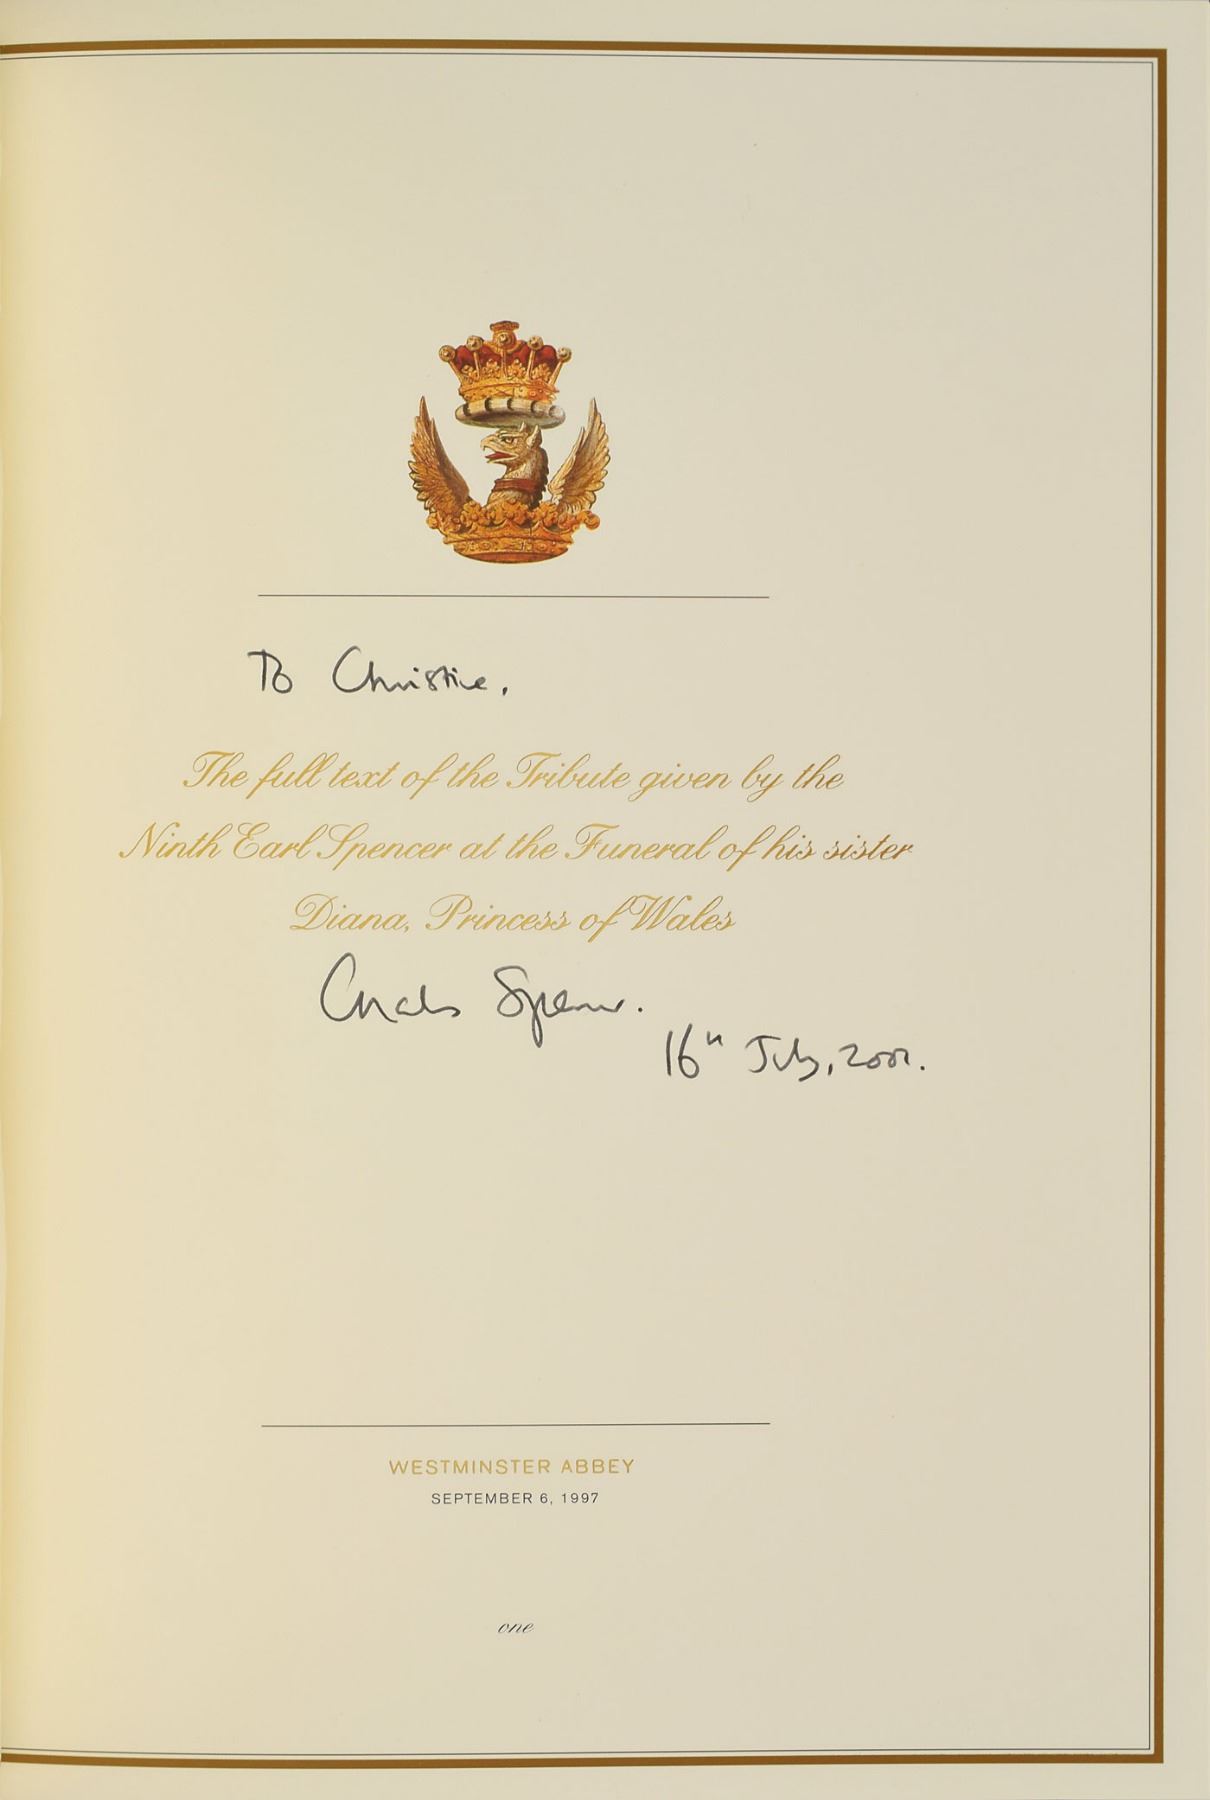 To Christine.
The full text of the Tribute given by the
Ninth Earl Spencer at the Funeral of his sister
Diana, Princess of Wales
Charles Spencer.
16th July,
WESTMINSTER ABBEY
SEPTEMBER 6, 1997
one